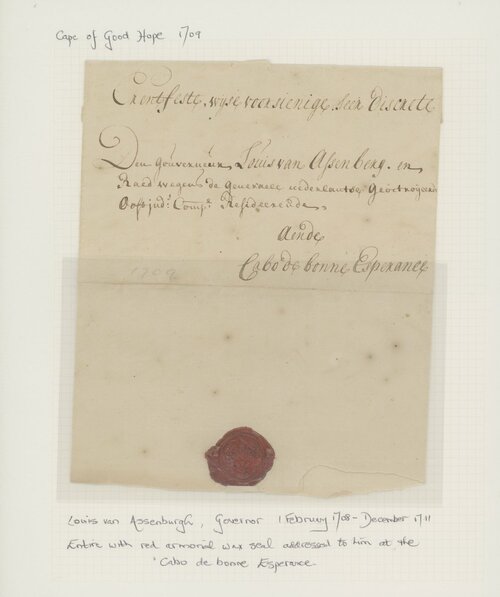 Cape of Good Hope 1709
Erentfeste, wyse voorsienige seer Discrete
Den Gouverneur, Louis van Assenberg. en,
Raed wegens de generaele nederlantse, Geoctroyeerde
Oostind: Comp: Resideerende,
Aende
Cabo de bonne Esperance
1709
Louis van Assenburgh, Governor 1 February 1708 - December 1711
Entire with red armorial wax seal addressed to him at the
'Cabo de bonne Esperance.